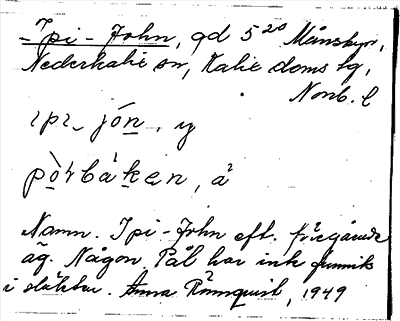 -Ipi-John, gd 5²⁰ Månsbyn,
Nederkalix sn, Kalix doms lg,
Norrb. l
ɩpɩ- jón, ɩy
pòrbàken, å
Namn. Ipi-John eft. föregående
äg. Någon Pål har inte funnits
i släkten. Anna Rönnquist, 1949